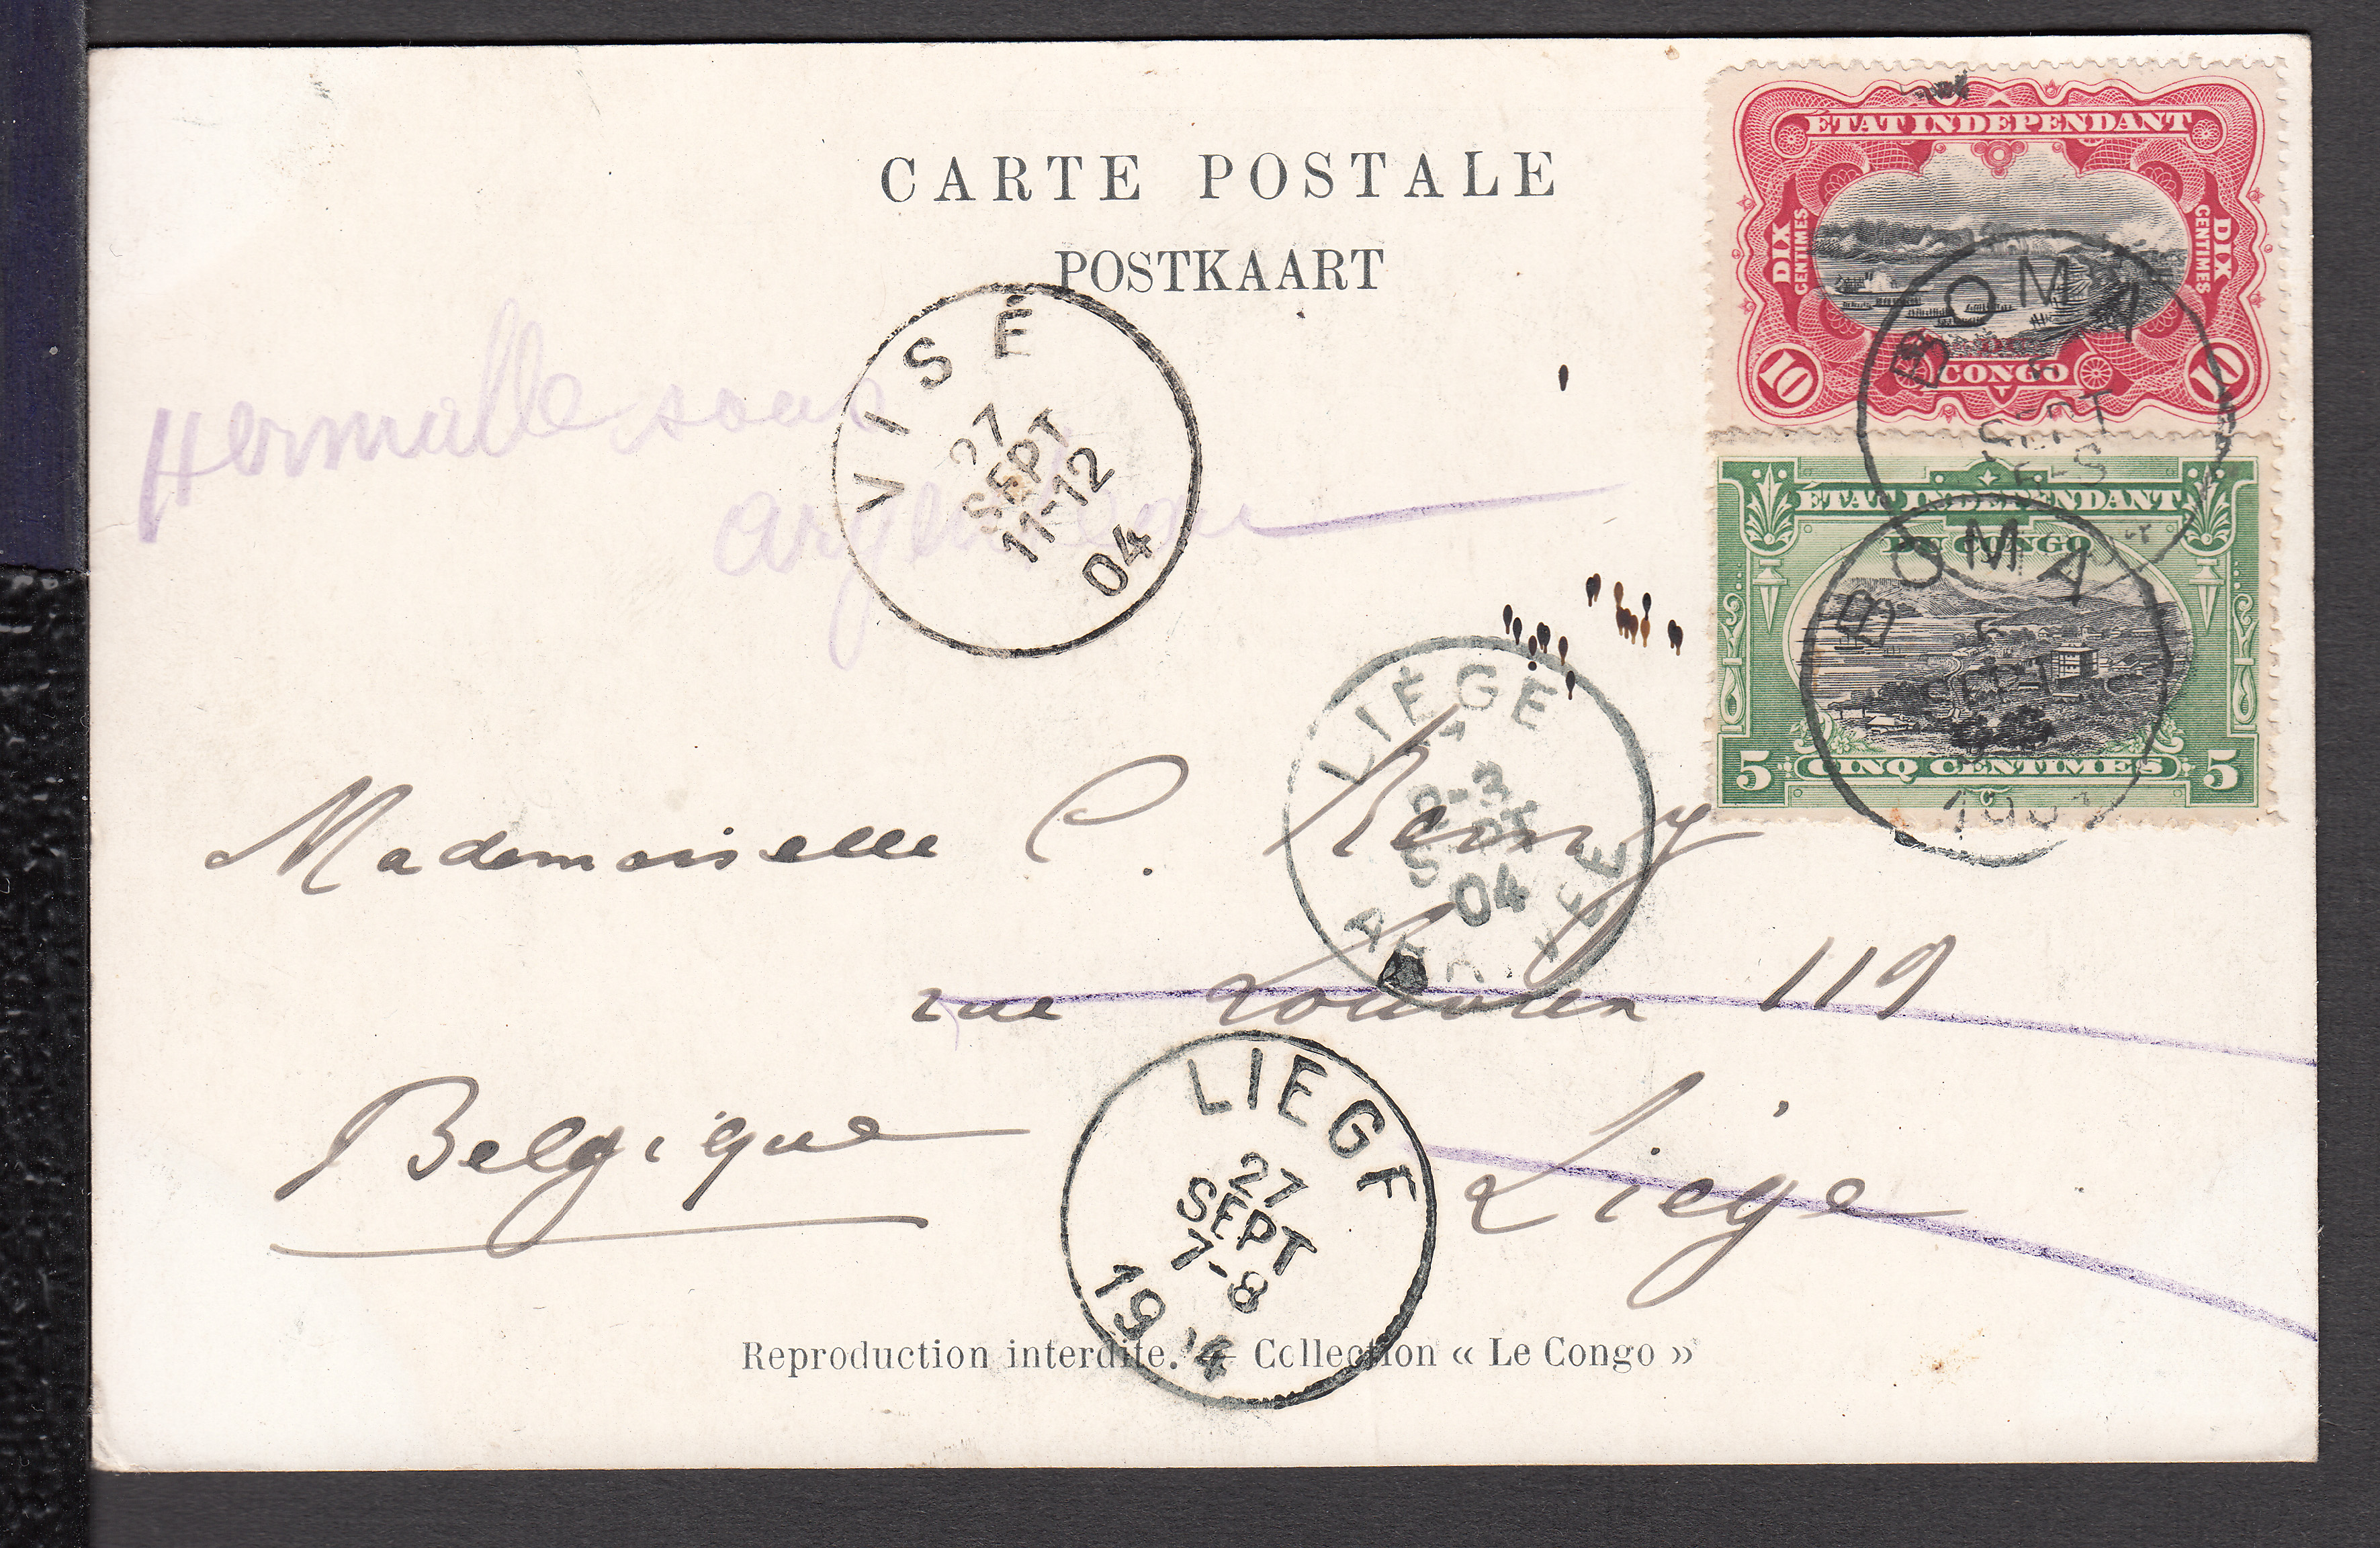 CARTE POSTALE
POSTKAART
ÉTAT INDÉPENDANT
DIX CENTIMES
DIX CENTIMES
10
CONGO
10
BOMA
SEPT
ÉTAT INDÉPENDANT
DU CONGO
5 CINQ CENTIMES 5
BOMA
6
SEPT
VISÉ
27
SEPT
11-12
04
Hermalle sous
argenteau
LIÉGE
2-3
SEPT
04
ARRIVÉE
Mademoiselle C. Remy
rue Louvrex 119
Belgique
Liège
LIEGE
27
SEPT
7-8
1904
Reproduction interdite. — Collection « Le Congo »